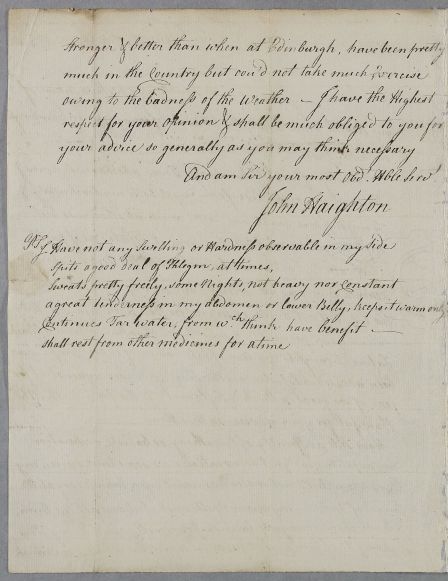 stronger & better than when at Edinburgh, have been pretty
much in the Country but could not take much Exercise
owing to the badness of the weather — I have the Highest
respect for your opinion & shall be much obliged to you for
your advice so generally as you may think necessary
And am Sir your most Obd. Hble Servt
John Haighton
PS I Have not any Swelling or Hardness observable in my Side
Spits a good deal of Phlegm, at times,
Sweats pretty freely some Nights, not heavy nor Constant
a great tenderness in my abdomen or lower Belly, keeps it warm only
Continues Tar water, from wch think have benefit —
shall rest from other medicines for a time